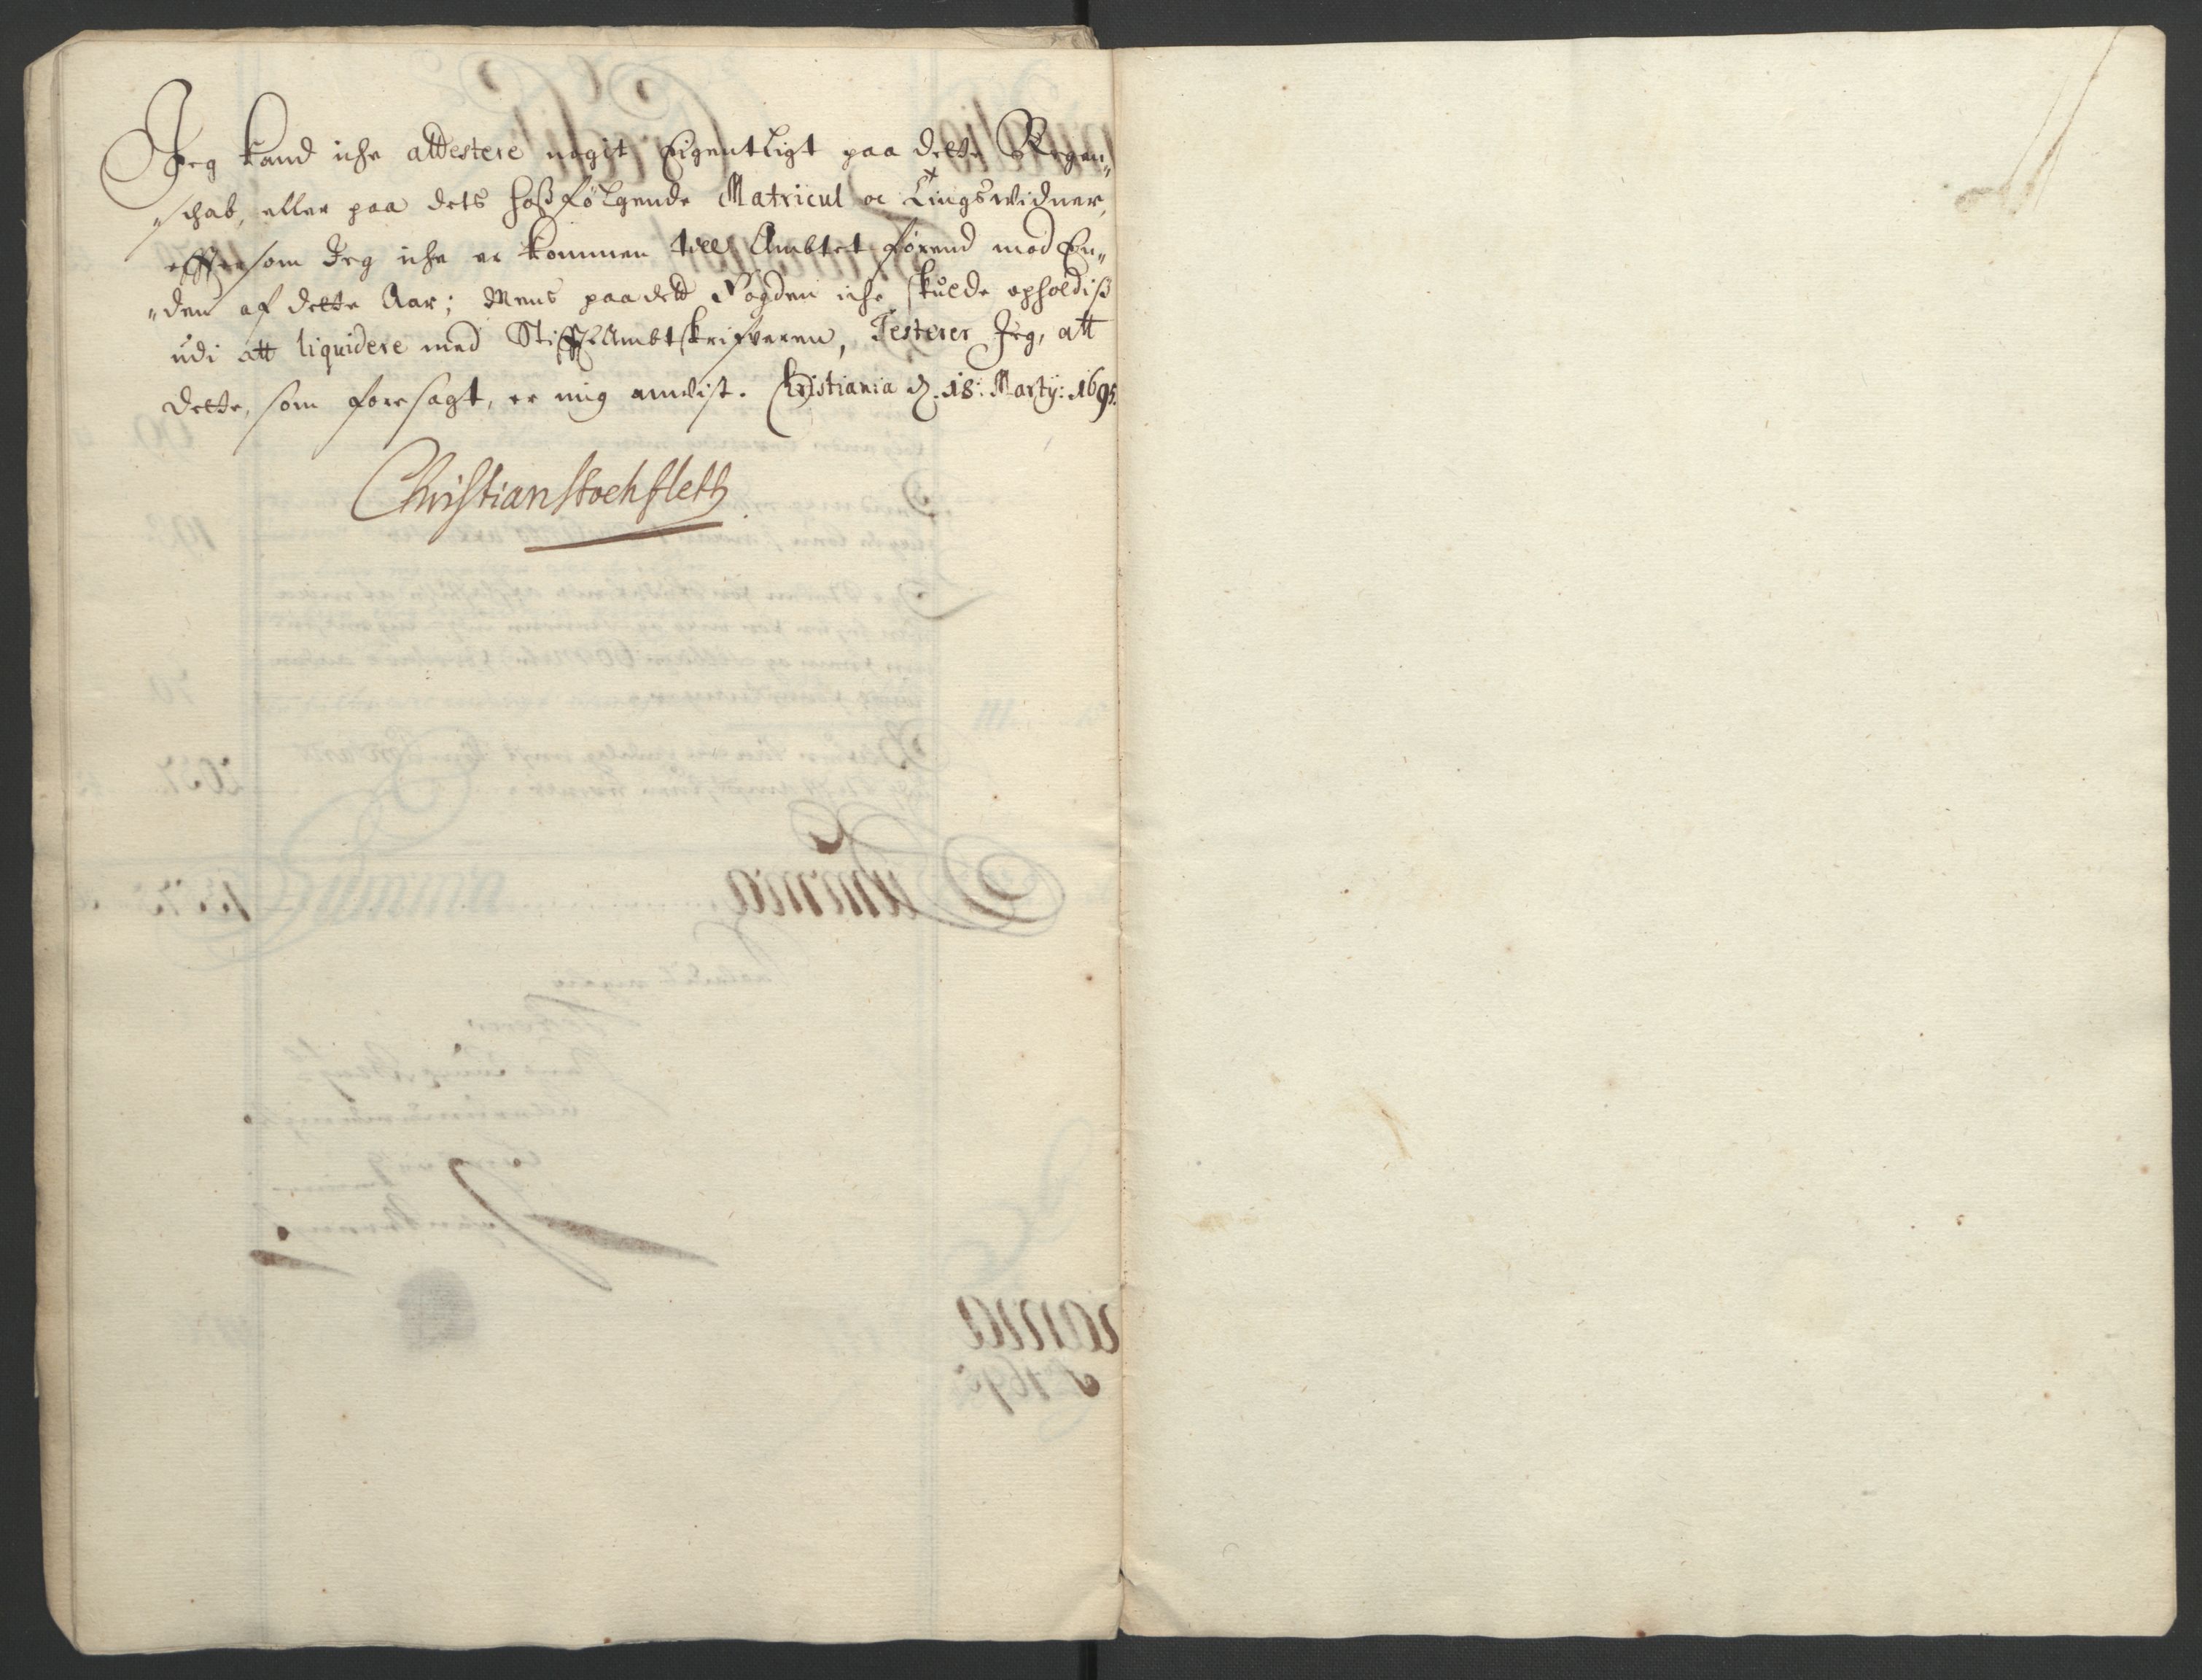 Jeg kand iche attestere nogit Eigentligt paa dette Regen„
„schab, eller paa dets hoßfølgende Matricul oc Tingswidner,
effter som Jeg iche er kommen till Ambtet førend mod En„
„den af dette Aar; Mens paa dett Fogden iche skulde opholdiß
udi att liquidere med StifftAmbtskrifveren, Testerer Jeg, att
dette, som foresagt, er mig anvist. Christiania d. 18. Martij: 1695.
Christian Stockfleth